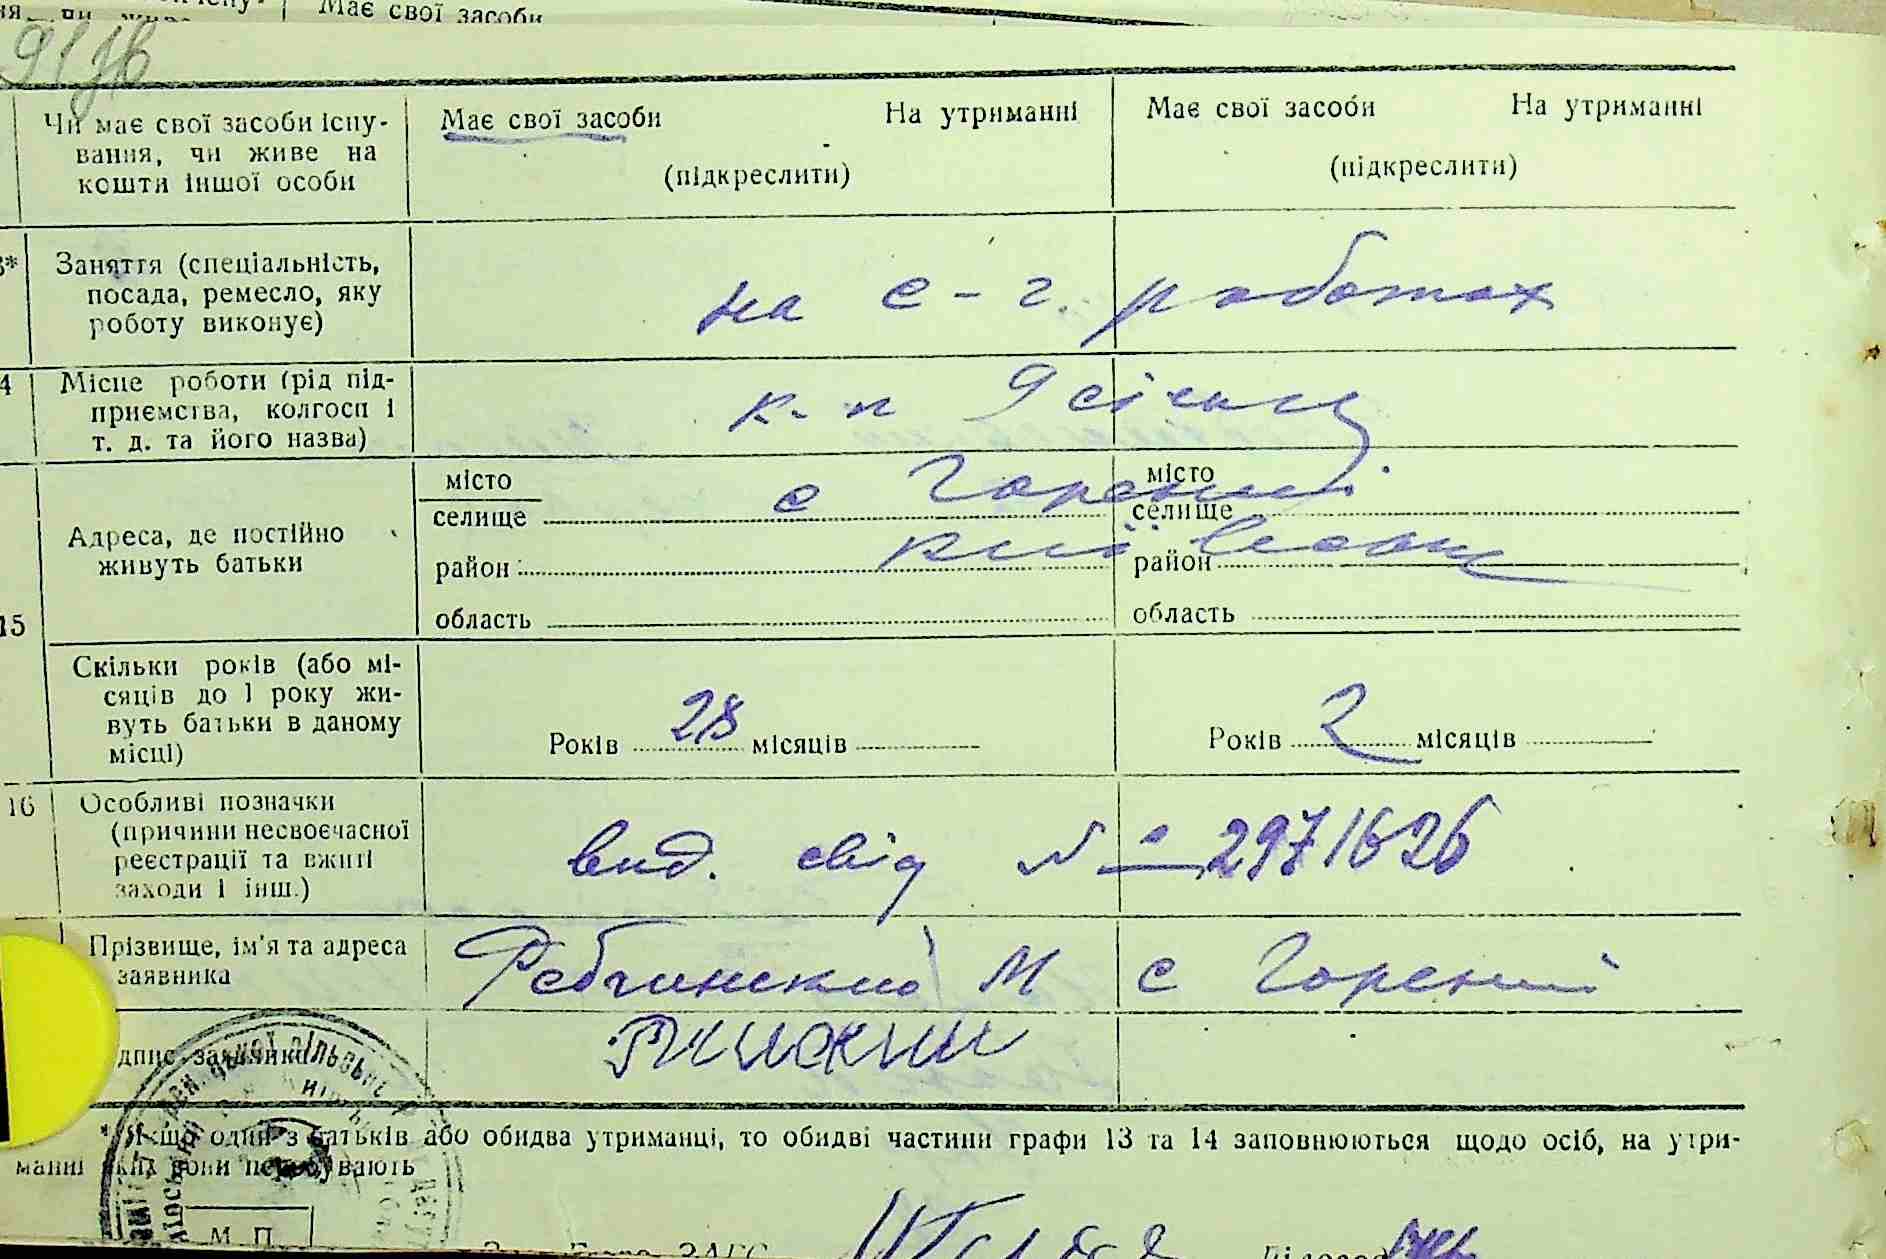 Має свої засоби
Чи має свої засоби існу-
вання, чи живе на
кошти іншої особи
Має свої засоби На утриманні
(підкреслити)
Має свої засоби На утриманні
(підкреслити)
Заняття (спеціальність,
посада, ремесло, яку
роботу виконує)
на с-г. роботах
14 Місце роботи (рід під-
приємства, колгосп і
т. д. та його назва)
к-п
15 Адреса, де постійно
живуть батьки
місто
селище
район
область
с Гореничі
місто
селище
район
область
Скільки років (або мі-
сяців до 1 року жи-
вуть батьки в даному
місці)
Років 28 місяців
Років 2 місяців
16 Особливі позначки
(причини несвоєчасної
реєстрації та вжиті
заходи і інш.)
вид. свід № 2971626
Прізвище, ім'я та адреса
заявника
М с Гореничі
* Якщо один з батьків або обидва утриманці, то обидві частини графи 13 та 14 заповнюються щодо осіб, на утри-
манні яких вони перебувають
М П
ЗАГС